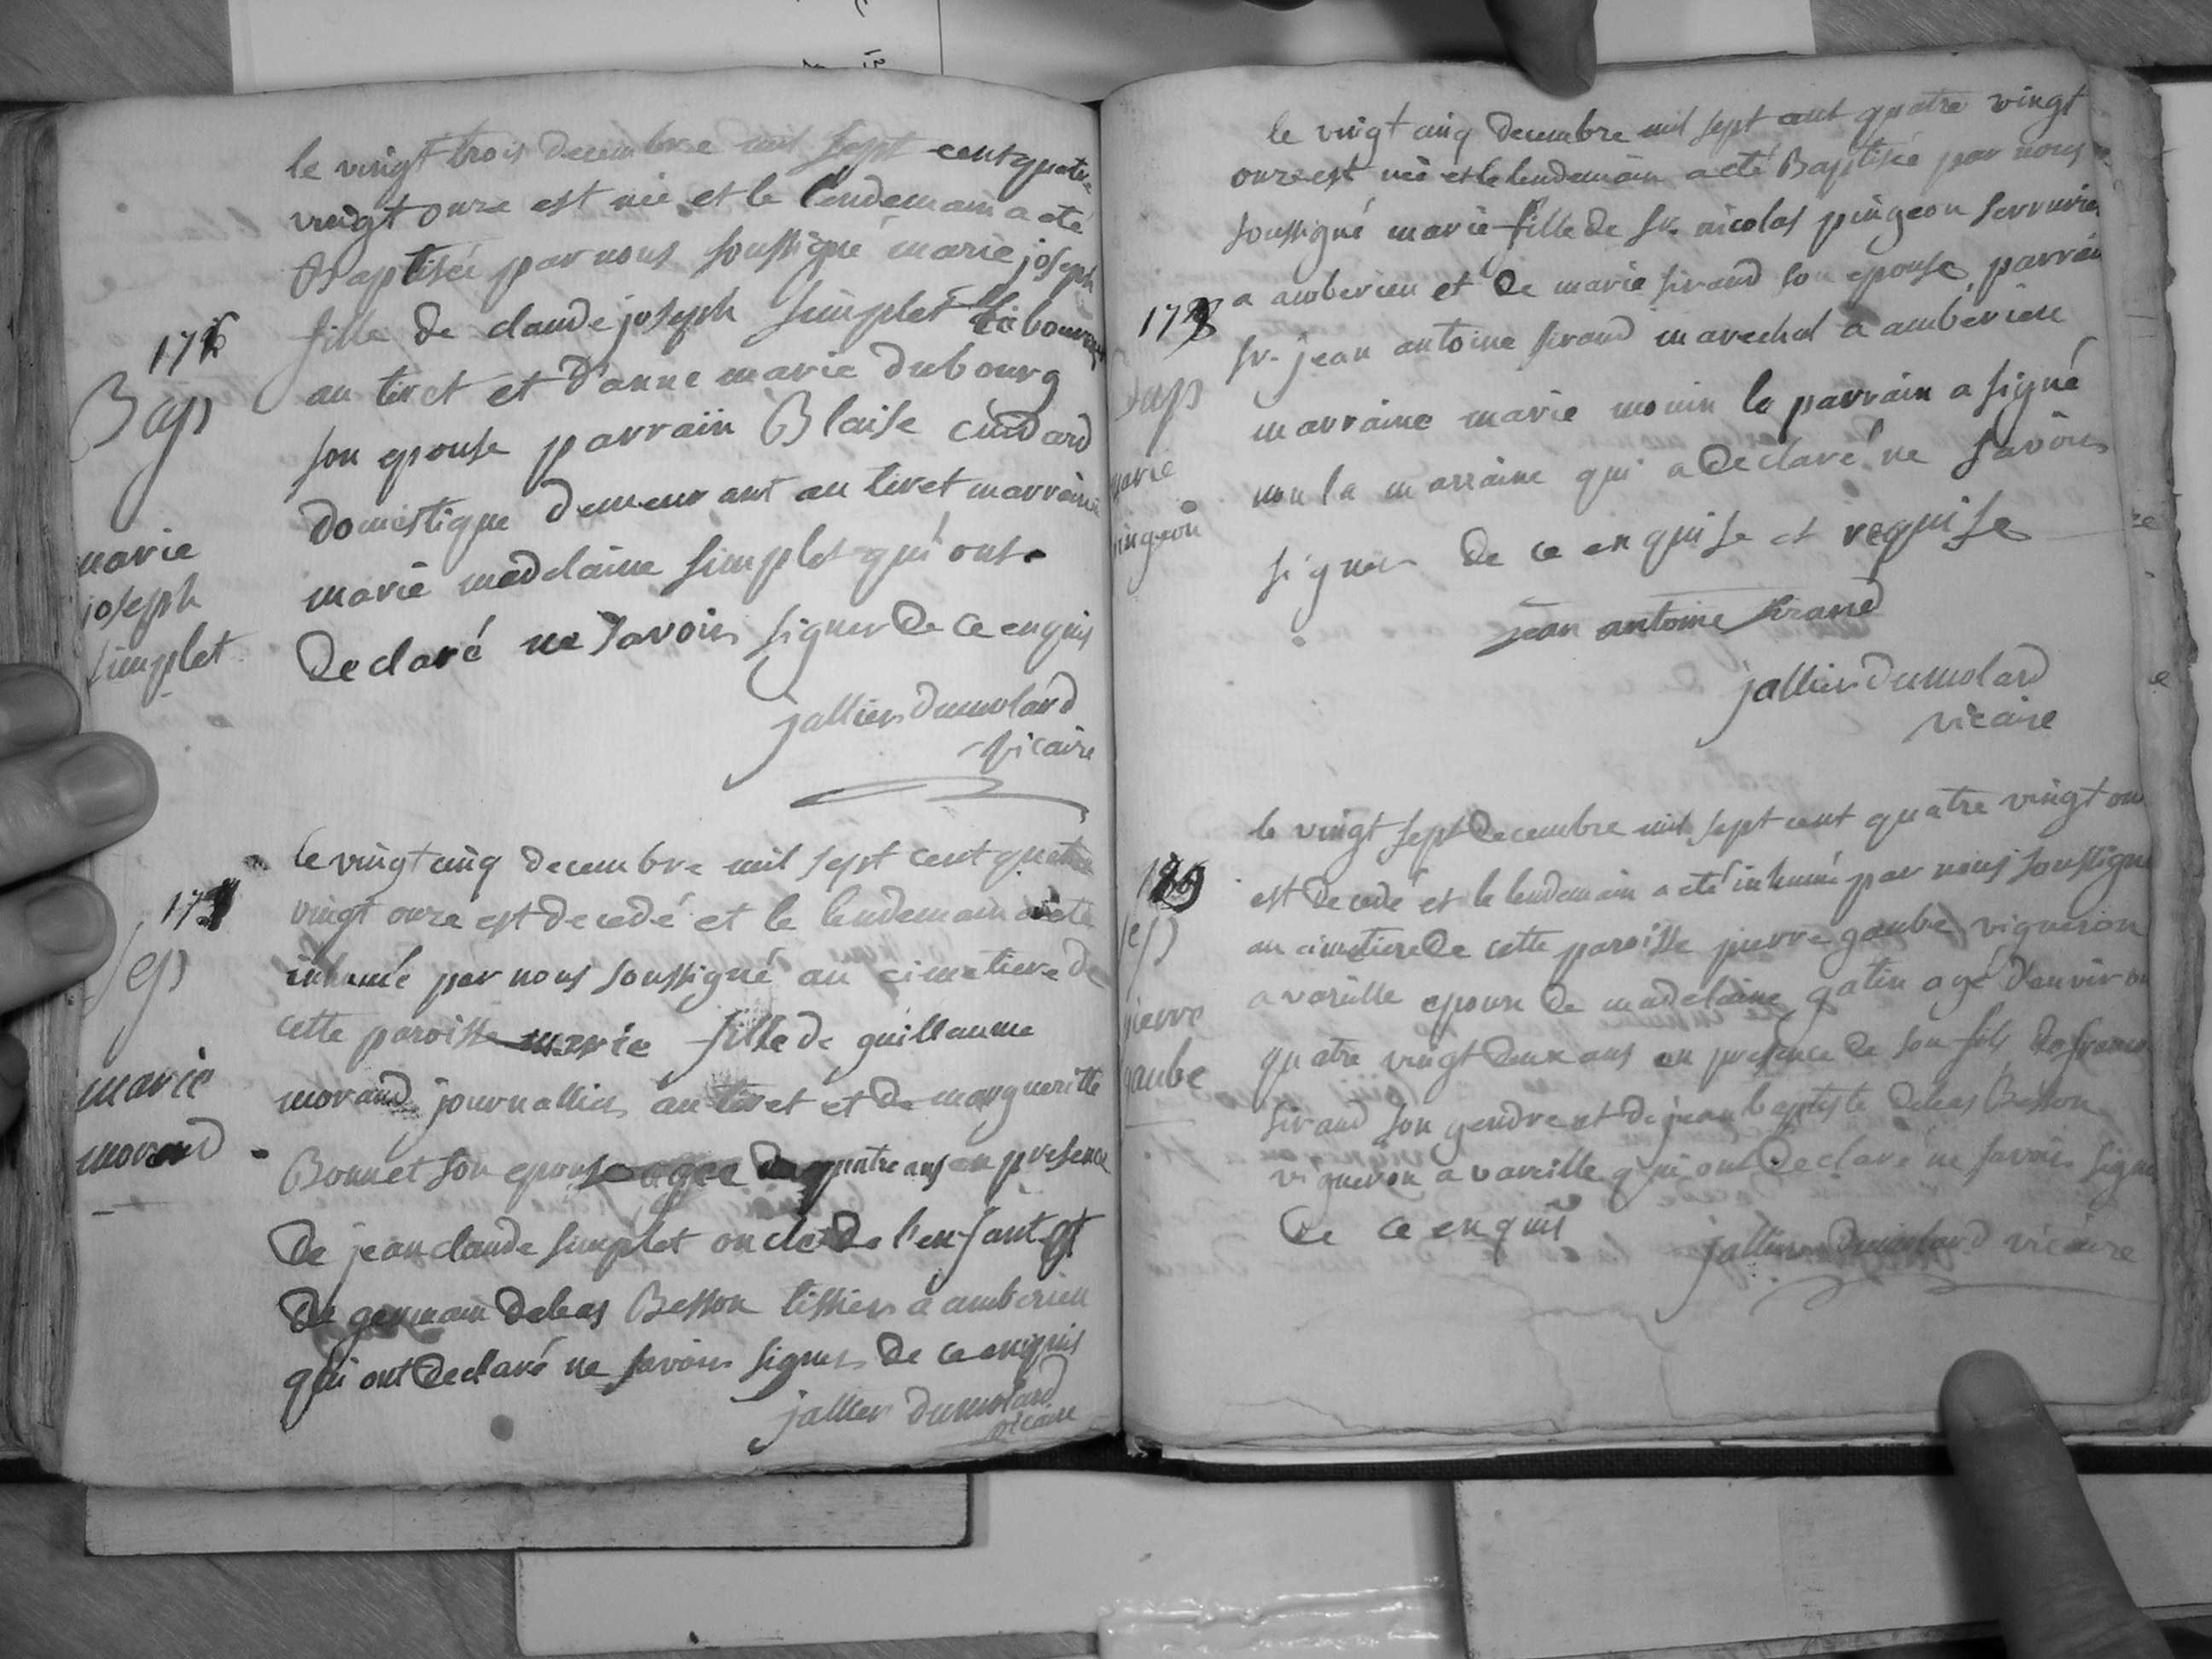 le vingt trois decembre mil sept cent quatre
vingt onze est née et le lendemain a eté
Baptisée par nous soussigné marie joseph
fille de claude joseph simplet laboureur
au tiret et d'anne marie dubourg
son epouse parrain Blaise
domestique demeurant au tiret marraine
marie madelaine simplet qui ont
declaré ne savoir signer de ce enquis
jallier dumolard
vicaire
Bap
marie
joseph
simplet
le vingt cinq decembre mil sept cent quatre
vingt onze est decedé et le lendemain a eté
inhumée par nous soussigné au cimetiere de
cette paroisse marie fille de guillaume
morand journallier au tiret et de margueritte
Bonnet son epouse agee de quatre ans en presence
de jean claude simplet oncle de l'enfant et
de germain debas Besson tissier a amberieu
qui ont declaré ne savoir signer de ce enquis
jallier dumolard
vicaire
Sep
marie
morand
le vingt cinq decembre mil sept cent quatre vingt
onze est née et le lendemain a eté Baptisée par nous
soussigné marie fille de sr. nicolas pingeon serrurier
a amberieu et de marie sirand son epouse parrain
sr. jean antoine sirand marechal a amberieu
marraine marie monin le parrain a signé
non la marraine qui a declaré ne savoir
signer de ce enquise et requise
jean antoine sirand
jallier dumolard
vicaire
Bap
marie
pingeon
le vingt sept decembre mil sept cent quatre vingt onze
est decedé et le lendemain a eté inhumé par nous soussigné
au cimetiere de cette paroisse pierre gaube vigneron
a vareille epoux de madelaine gatin agé d'environ
quatre vingt deux ans en presence de son fils de
sirand son gendre et de jean baptiste debas Besson
vigneron a vareille qui ont declaré ne savoir signer
de ce enquis
jallier dumolard vicaire
Sep
pierre
gaube